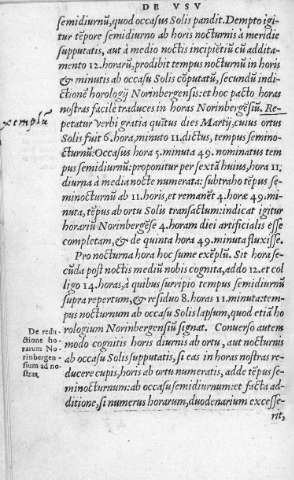 DE VSV
semidiurnũ, quod occasus Solis pandit. Dempto igi
tur tẽpore semidiurno ab horis nocturnis à meridie
supputatis, aut à medio noctis incipiẽtiũ cũ addita-
mento 12. horarũ, prodibit tempus nocturnũ in horis
& minutis ab occasu Solis cõputatũ, secundũ indi-
ctionẽ horologij Norinbergensis: et hoc pacto horas
nostras facilè traduces in horas Noribergẽsiũ. Re-
petatur verbi gratia quĩtus dies Martij, cuius ortus
Solis fuit 6. hora, minuto 11. dictus, tempus semino-
cturnũ: Occasus hora 5. minuta 49. nominatus tem
pus semidiurnũ: proponitur per sextã huius, hora 11;
diurna à media nocte numerata: subtraho tẽpus se-
minocturnũ ab 11. horis, et remanẽt 4. horæ 49. mi-
nuta, tẽpus ab ortu Solis transactum: indicat igitur
horariũ Norinbergẽse 4. horam diei artificialis esse
completam, & de quinta hora 49. minuta fluxisse.
Pro nocturna hora hoc sume exẽplũ. Sit hora se-
cũda post noctis mediũ nobis cognita, addo 12. et col
ligo 14. horas, à quibus surripio tempus semidiurnũ
supra repertum, & residuo 8. horas 11. minuta: tem-
pus nocturnum ab occasu Solis lapsum, quod etiã ho
rologium Norinbergensiũ signat. Conuerso autem
modo cognitis horis diurnis ab ortu, aut nocturnis
ab occasu Solis supputatis, si eas in horas nostras re-
ducere cupis, horis ab ortu numeratis, adde tẽpus se-
minocturnum: ab occasu semidiurnum: et facta ad-
ditione, si numerus horarum, duodenarium excesse-
rit,
De redu-
ctione ho-
rarum No
rinberge-
sium ad no-
stras.